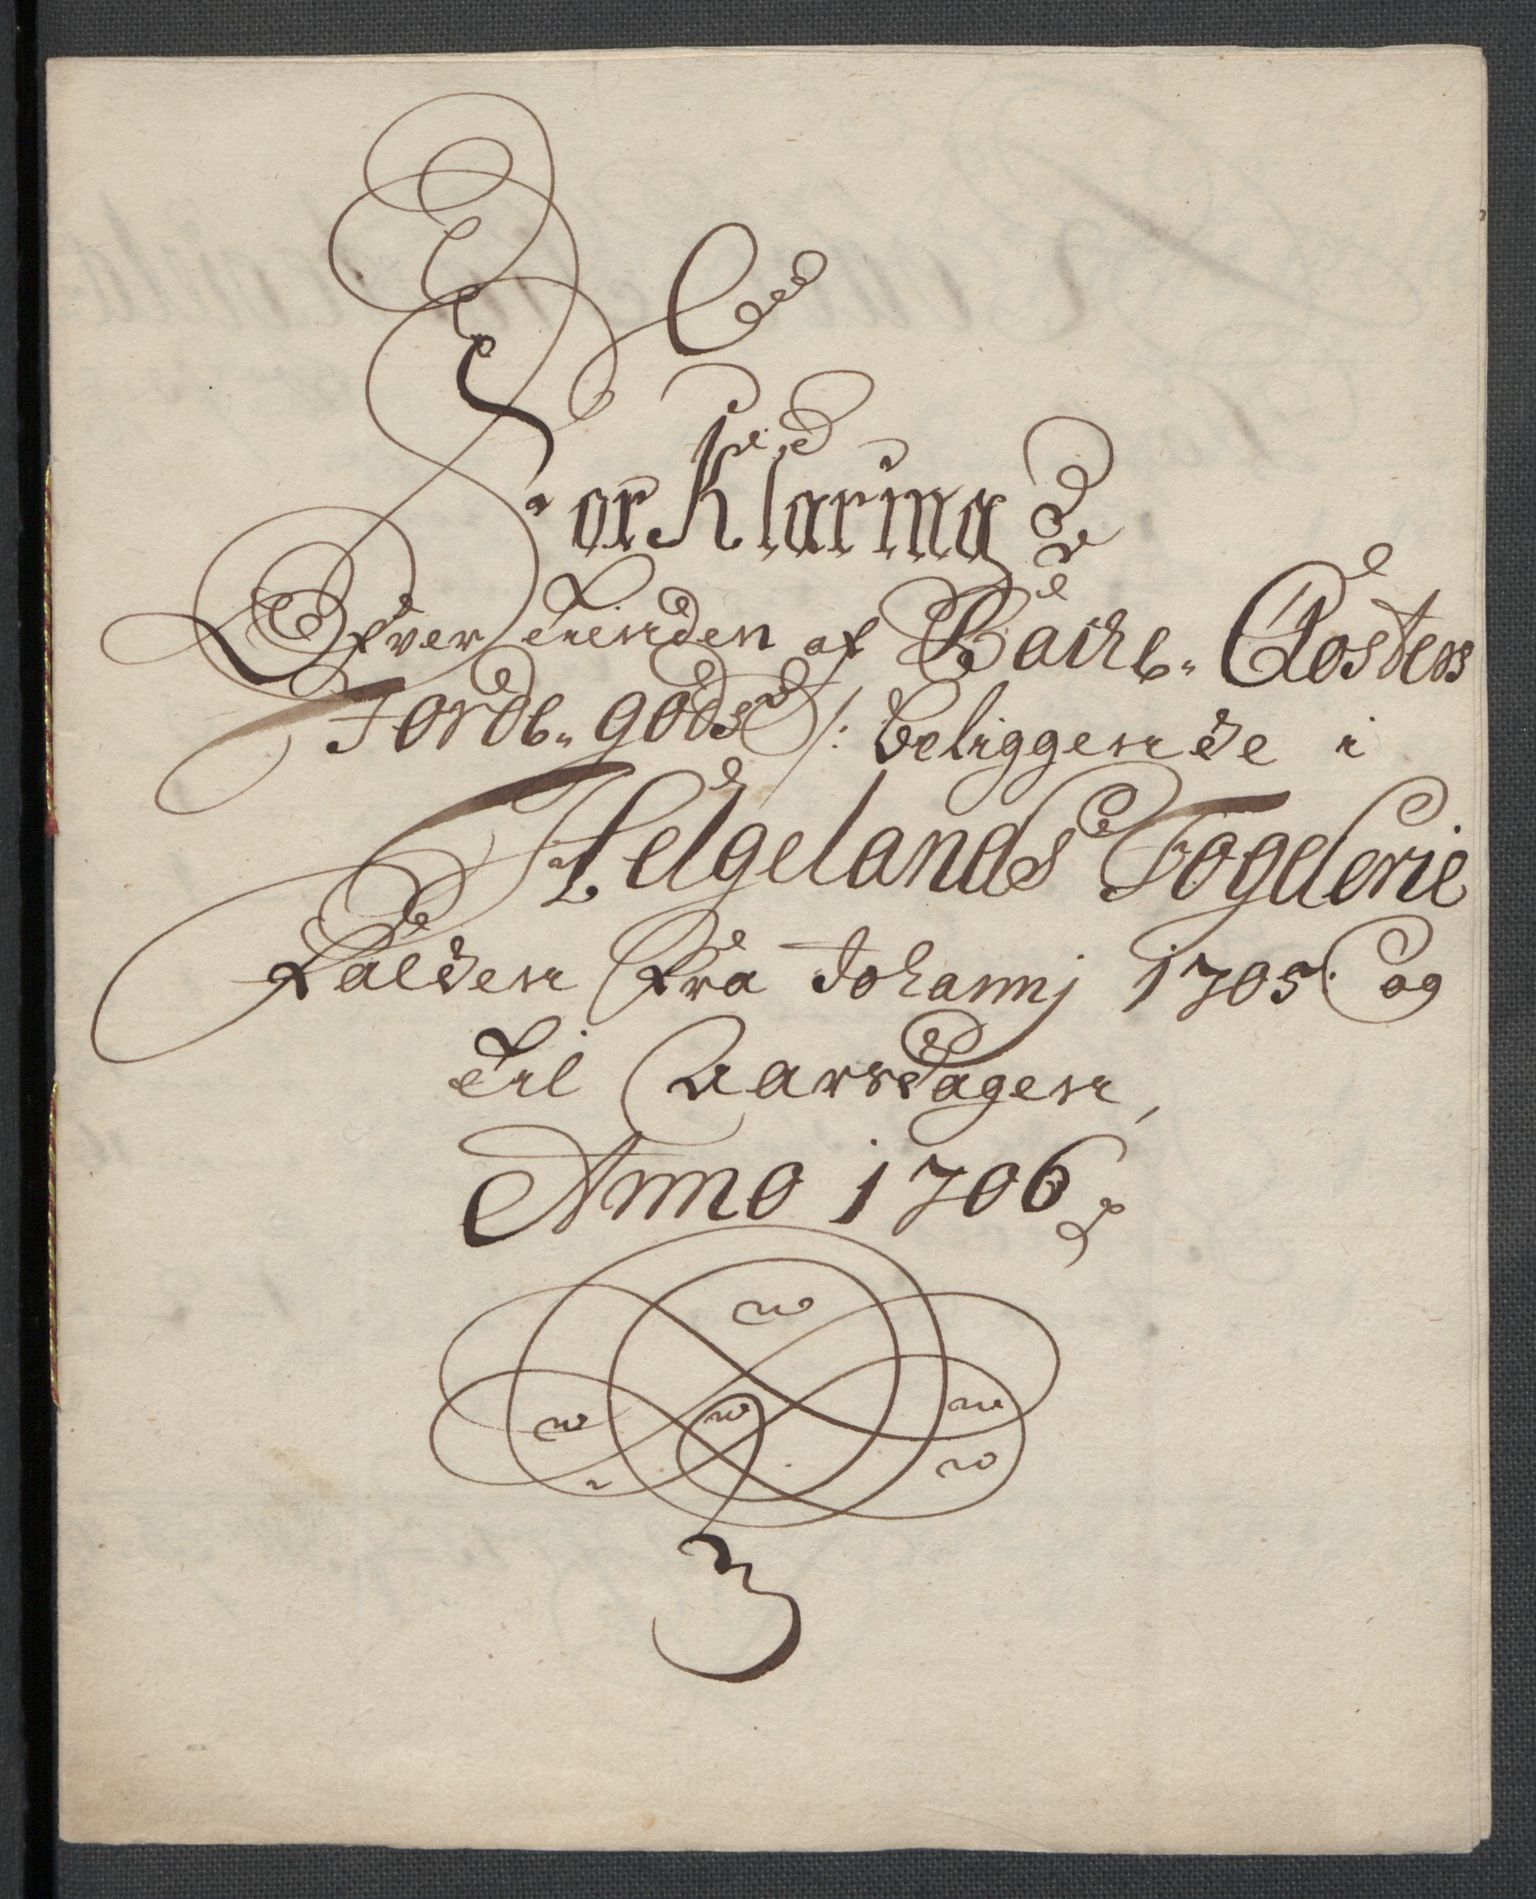 ForKlaring
Ofver Tienden af Backe Closters
Jorde gods /: beliggende i
Helgelands Fogderie
falden fra Johannj 1705 og
til Aarsdagen,
Anno 1706